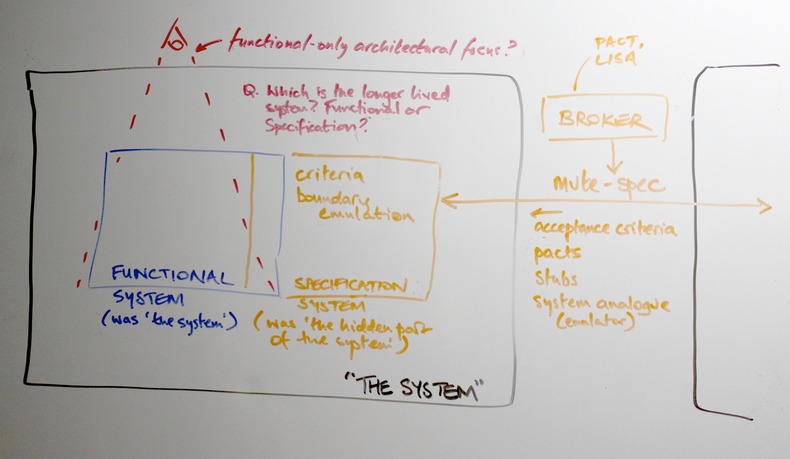 functional-only architectural focus?
Q. Which is the longer lived
system? Functional or
Specification?
PACT,
LISA
BROKER
mute-spec
criteria
boundary
emulation
acceptance criteria
pacts
stubs
system analogue
(emulator)
FUNCTIONAL
SYSTEM
(was 'the system')
SPECIFICATION
SYSTEM
(was 'the hidden part
of the system')
"THE SYSTEM"